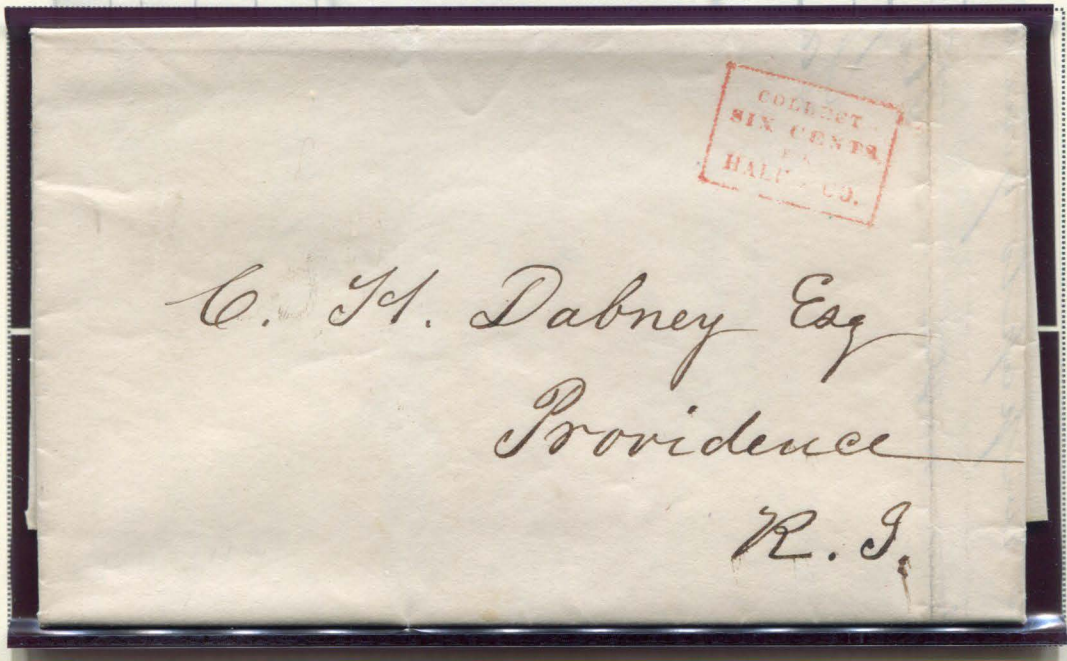 COLLECT
SIX CENTS
HALE & CO.
C. H. Dabney Esq
Providence
R. I.